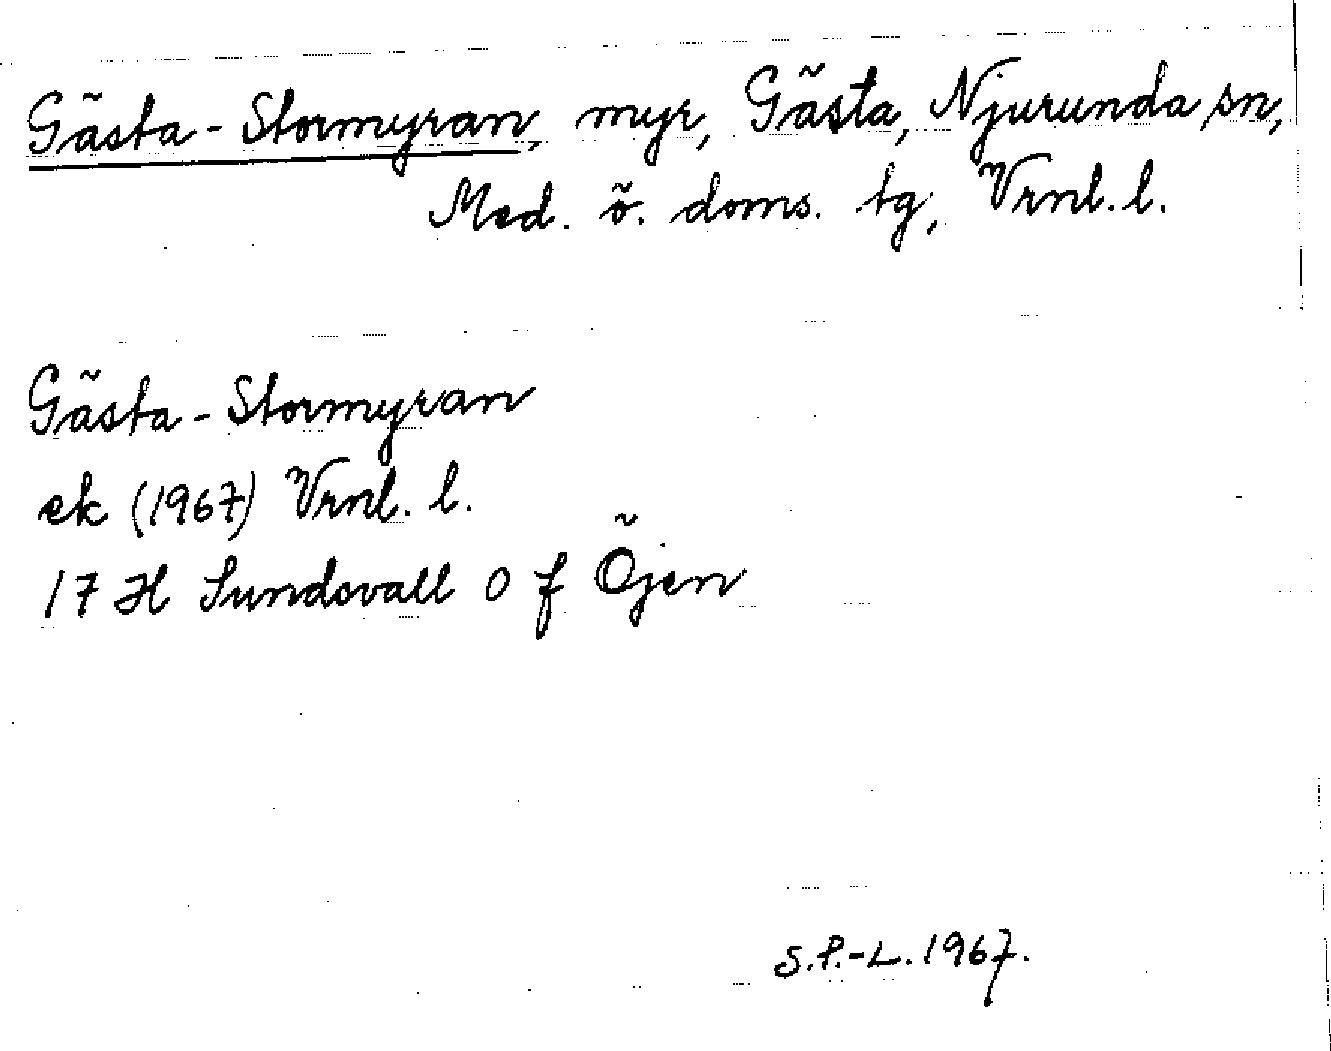 Gästa-Stormyran, myr, Gästa, Njurunda sn,
Med. ö. doms. tg, Vrnl. l.
Gästa-Stormyran
ek (1967) Vrnl. l.
17 H Sundsvall 0 f Öjen
S.P.-L. 1967.